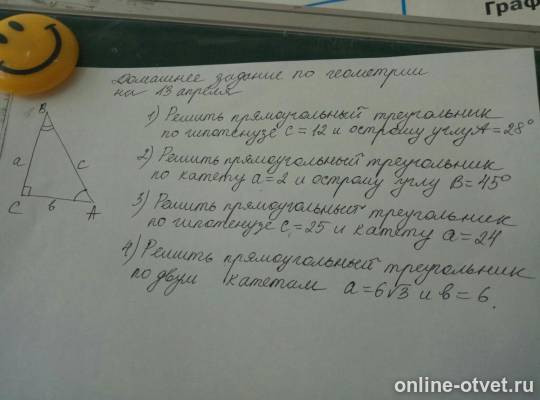 Граф
Домашнее задание по геометрии
на 13 апреля
1) Решить прямоугольный треугольник
по гипотенузе c = 12 и острому углу A = 28°
2) Решить прямоугольный треугольник
по катету a = 2 и острому углу B = 45°
3) Решить прямоугольный треугольник
по гипотенузе c = 25 и катету a = 24
4) Решить прямоугольный треугольник
по двум катетам a = 6√3 и b = 6.
B
a
c
C
b
A
online-otvet.ru